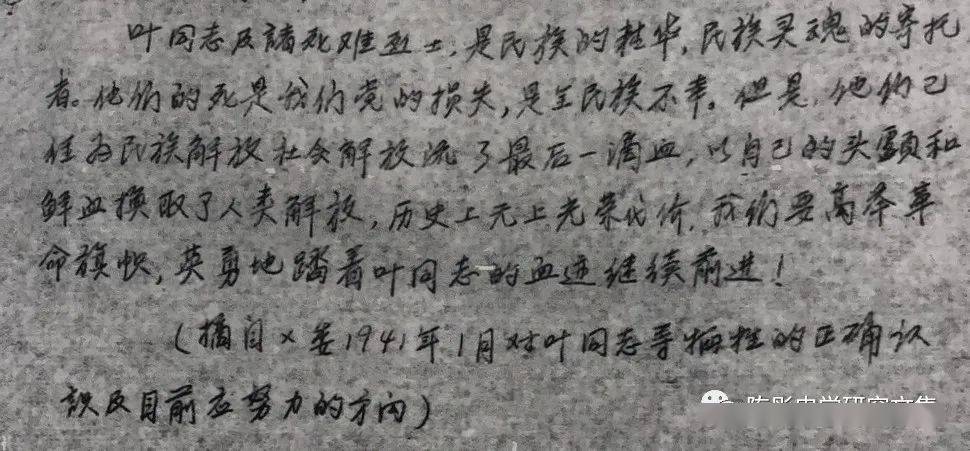 叶同志及諸死难烈士,是民族的精华,民族灵魂的寄托
者。他们的死是我们党的损失,是全民族不幸。但是,他们已
经为民族解放社会解放流了最后一滴血,以自己的头颅和
鲜血换取了人类解放,历史上无上光荣代价,我们要高举革
命旗帜,英勇地踏着叶同志的血迹继续前进!
(摘自×委1941年1月对叶同志等牺牲的正确认
識及目前应努力的方向)